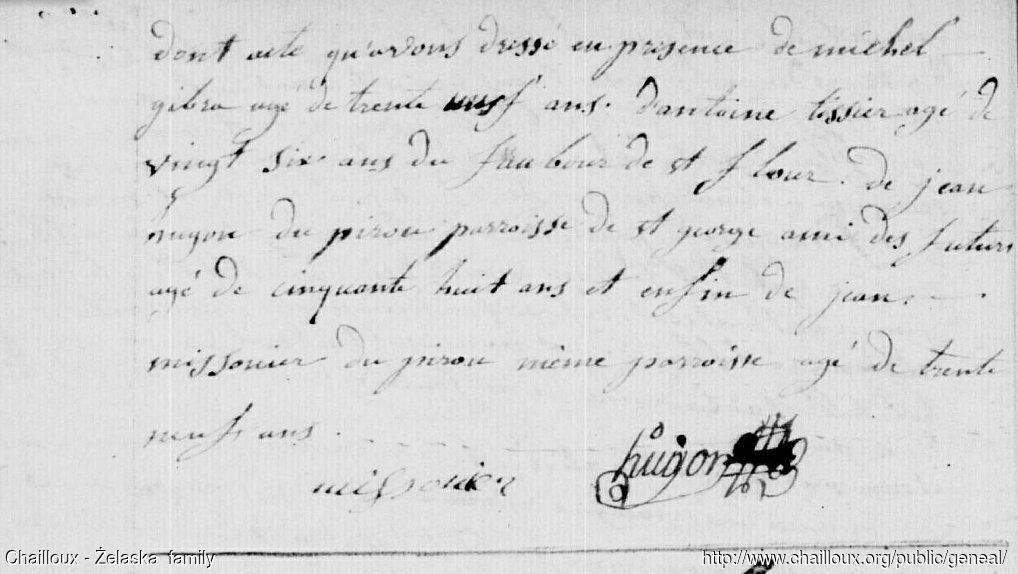 dont acte qu'avons dressé en presence de michel
gibra agé de trente neuf ans. d'antoine tissier agé de
vingt six ans du faubour de st flour. de jean
hugon du pirou parroisse de st george ami des futurs
agé de cinquante huit ans et enfin de jean
missonier du pirou même parroisse agé de trente
neuf ans.
missonier hugon
Chailloux - Żelaska family http://www.chailloux.org/public/geneal/